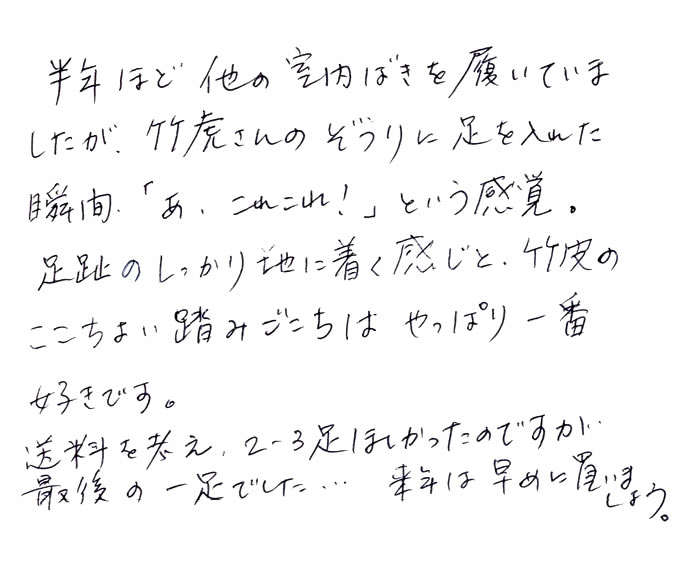 半年ほど他の室内ばきを履いていま
したが、竹虎さんのぞうりに足を入れた
瞬間、「あ、これこれ！」という感覚。
足趾のしっかり地に着く感じと、竹皮の
ここちよい踏みごこちは やっぱり一番
好きです。
送料を考え、2-3足ほしかったのですが…
最後の一足でした… 来年は早めに買いま
しょう。